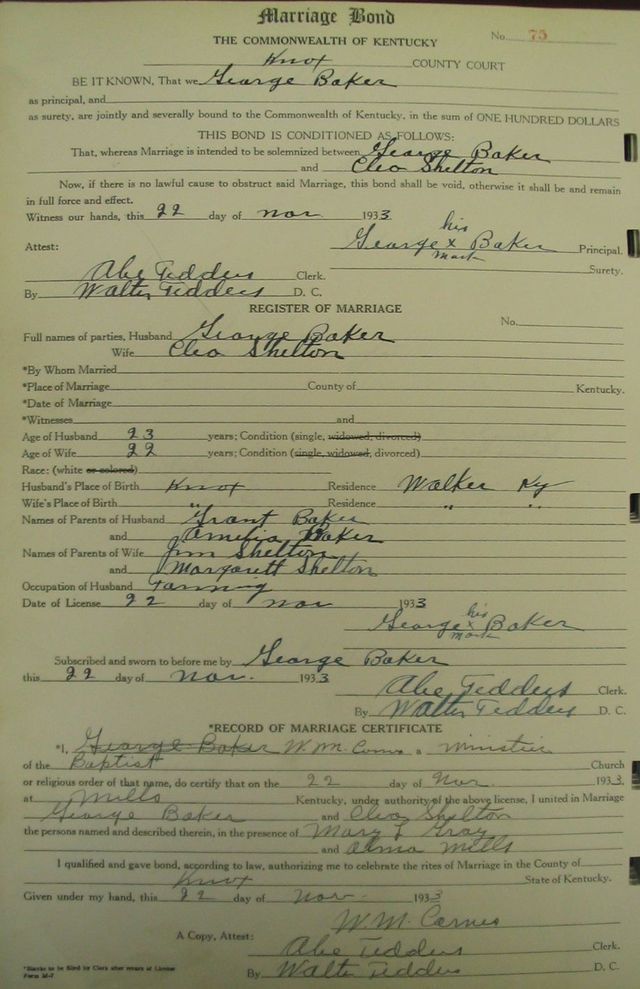 Marriage Bond
No. 75
THE COMMONWEALTH OF KENTUCKY
Knox COUNTY COURT
BE IT KNOWN, That we George Baker
as principal, and
as surety, are jointly and severally bound to the Commonwealth of Kentucky, in the sum of ONE HUNDRED DOLLARS
THIS BOND IS CONDITIONED AS FOLLOWS:
That, whereas Marriage is intended to be solemnized between George Baker
and Cleo Shelton
Now, if there is no lawful cause to obstruct said Marriage, this bond shall be void, otherwise it shall be and remain
in full force and effect.
Witness our hands, this 22 day of Nov. 1933.
his
Attest: George x Baker Principal.
mark
Surety.
Abe Tedders Clerk.
By Walter Tedders D. C.
REGISTER OF MARRIAGE
No.
Full names of parties, Husband George Baker
Wife Cleo Shelton
*By Whom Married
*Place of Marriage County of Kentucky.
*Date of Marriage
*Witnesses and
Age of Husband 23 years; Condition (single, widowed, divorced)
Age of Wife 22 years; Condition (single, widowed, divorced)
Race: (white or colored)
Husband's Place of Birth Knox Residence Walker Ky
Wife's Place of Birth " Residence " "
Names of Parents of Husband Grant Baker
and Amelia Baker
Names of Parents of Wife Jim Shelton
and Margarett Shelton
Occupation of Husband Farming
Date of License 22 day of Nov 1933
his
George x Baker
mark
Subscribed and sworn to before me by George Baker
this 22 day of Nov. 1933
Abe Tedders Clerk.
By Walter Tedders D. C.
*RECORD OF MARRIAGE CERTIFICATE
*I, George Baker W.M. Carnes a Minister
of the Baptist Church
or religious order of that name, do certify that on the 22 day of Nov. 1933.
at Mills Kentucky, under authority of the above license, I united in Marriage
George Baker and Cleo Shelton
the persons named and described therein, in the presence of Mary Gray
and Alma Mills
I qualified and gave bond, according to law, authorizing me to celebrate the rites of Marriage in the County of
Knox State of Kentucky.
Given under my hand, this 22 day of Nov. 1933
W.M. Carnes
A Copy, Attest:
Abe Tedders Clerk.
By Walter Tedders D. C.
*Blanks to be filled by Clerk after return of License
Form M-7